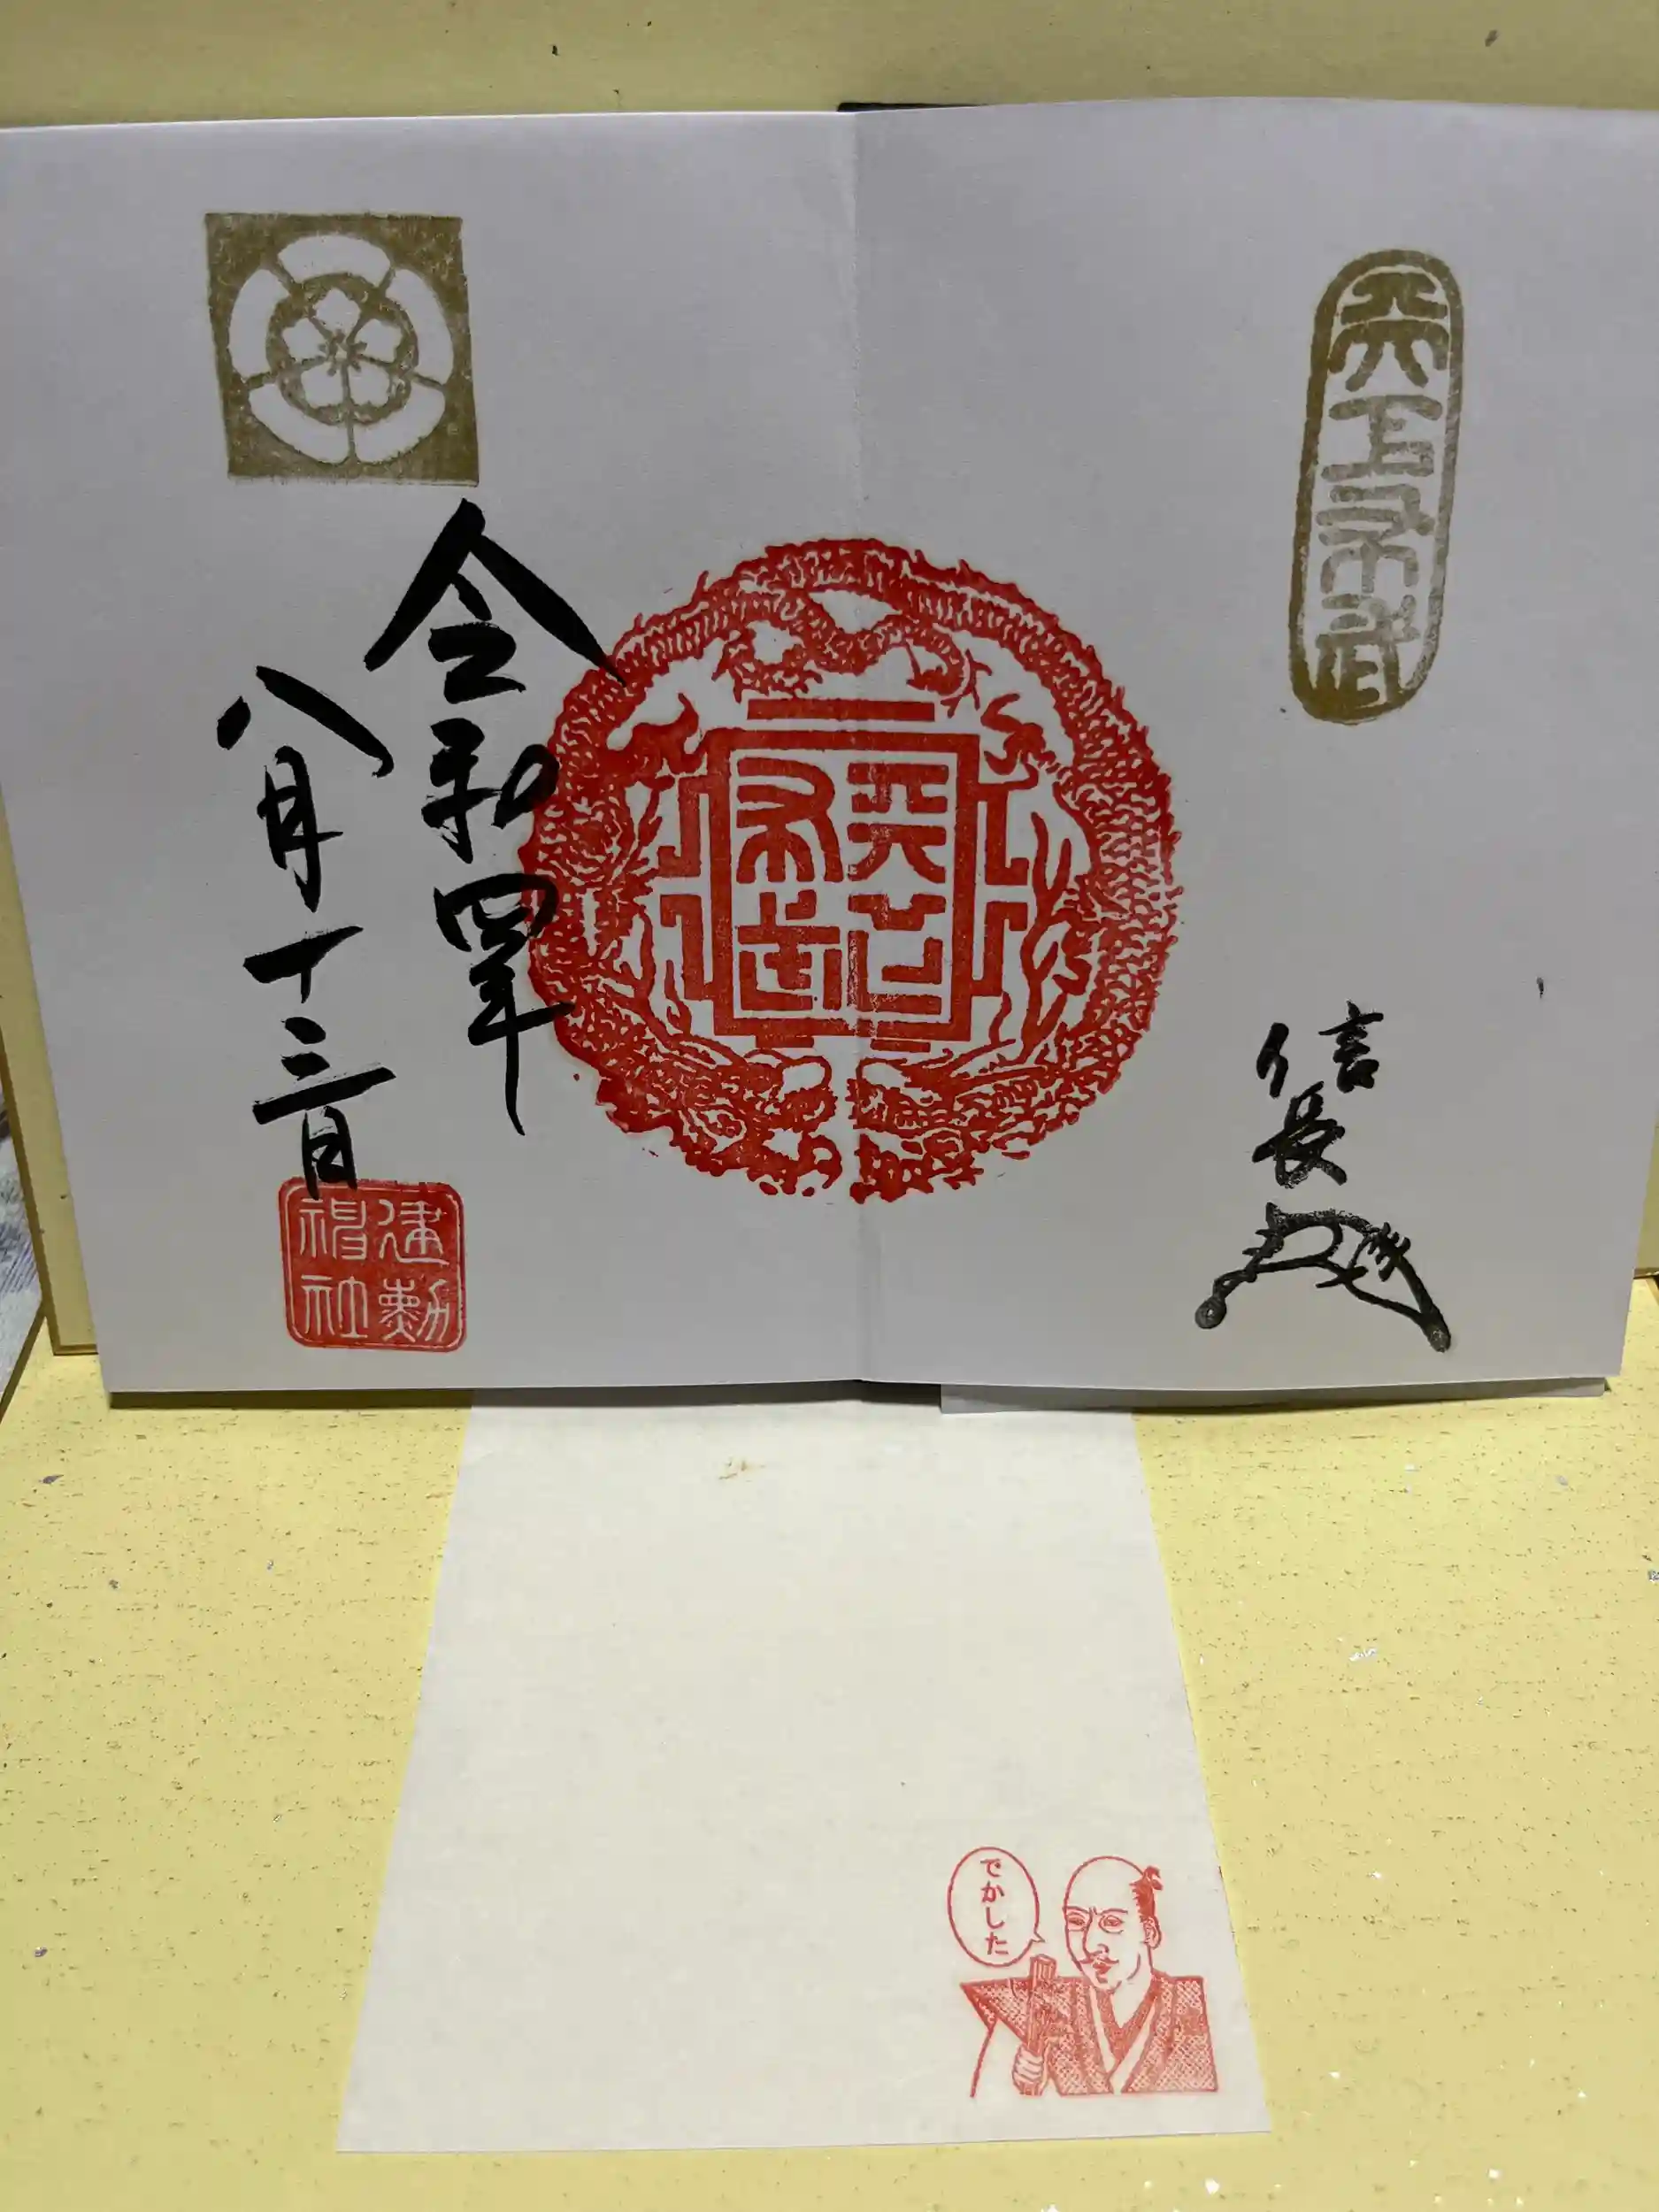 天下布武
信長
天下布武
令和四年
八月十三日
建勲神社
でかした